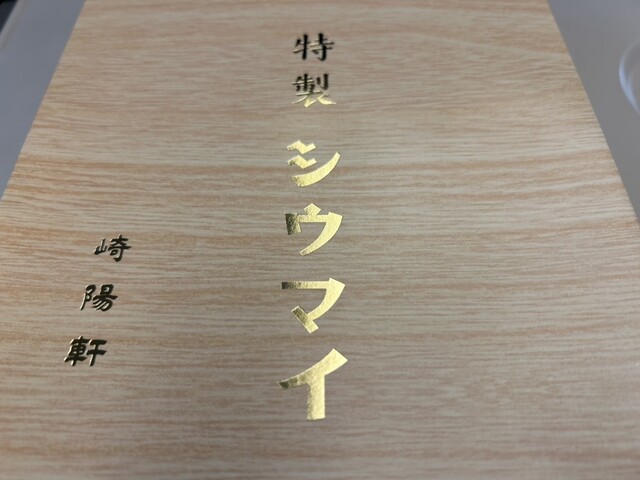 特製シウマイ
崎陽軒